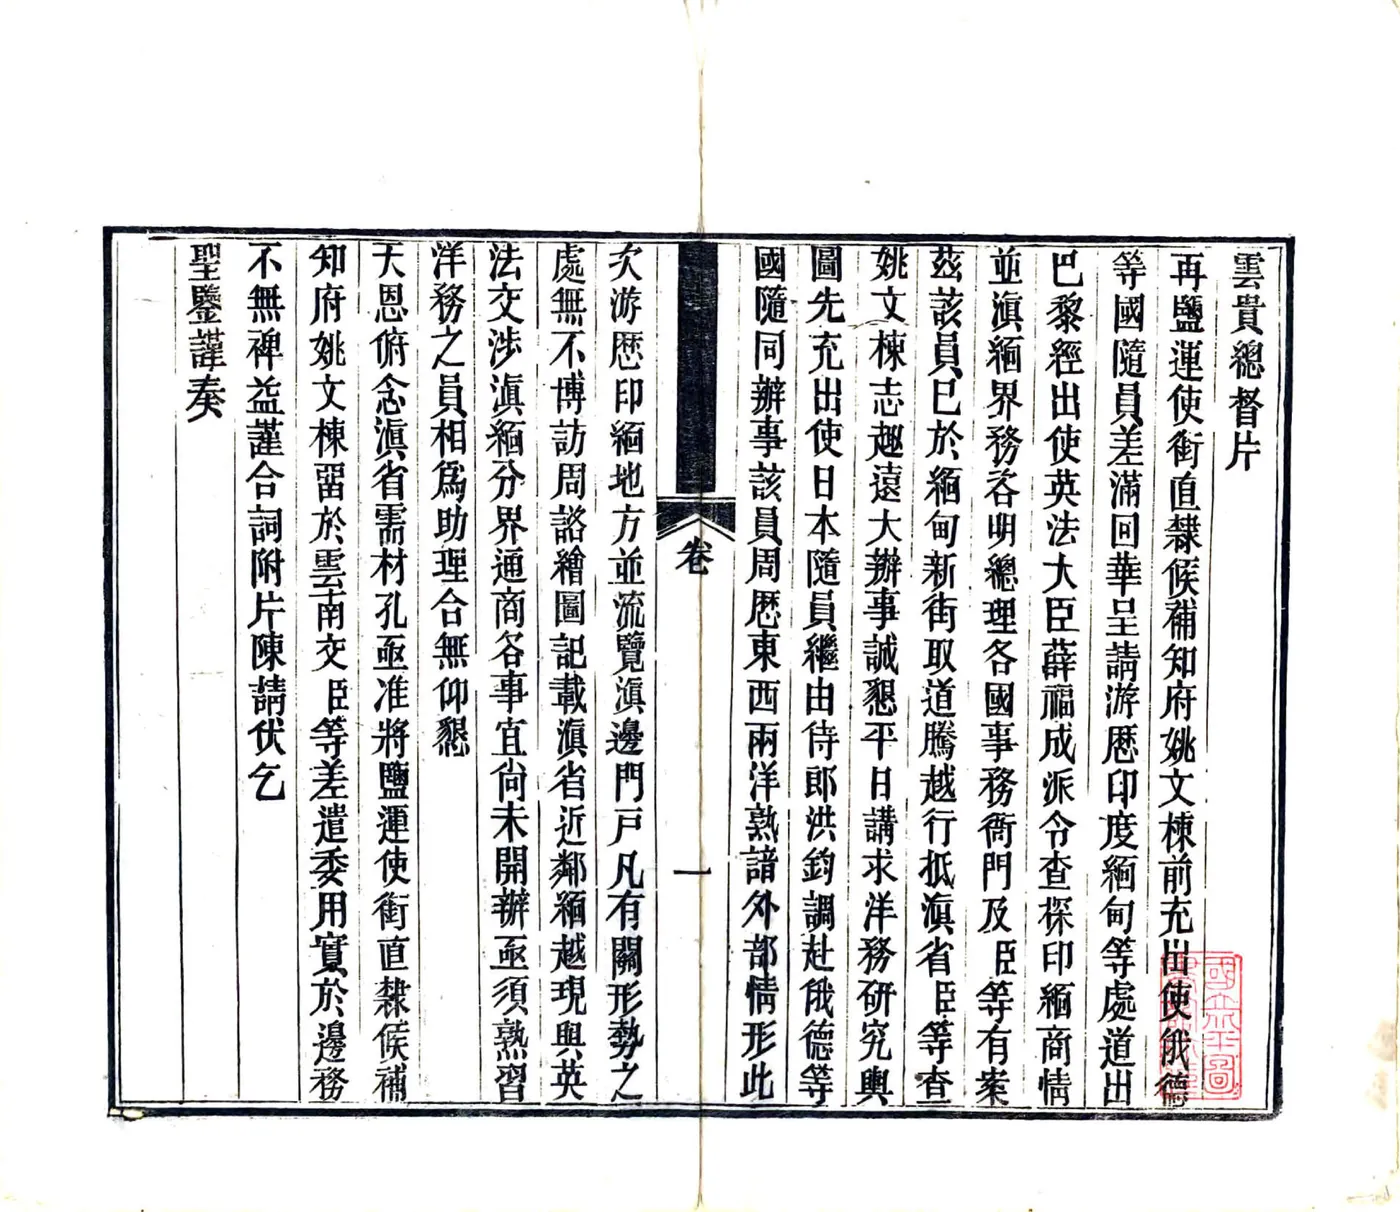 雲貴總督片
再鹽運使銜直隸候補知府姚文棟前充出使俄德
等國隨員差滿回華呈請游歷印度緬甸等處道出
巴黎經出使英法大臣薛福成派令查探印緬商情
並滇緬界務咨明總理各國事務衙門及臣等有案
茲該員已於緬甸新街取道騰越行抵滇省臣等查
姚文棟志趣遠大辦事誠懇平日講求洋務研究輿
圖先充出使日本隨員繼由侍郎洪鈞調赴俄德等
國隨同辦事該員周歷東西兩洋熟諳外部情形此
卷
一
次游歷印緬地方並流覽滇邊門戶凡有關形勢之
處無不博訪周諮繪圖記載滇省近鄰緬越現與英
法交涉滇緬分界通商各事宜尚未開辦亟須熟習
洋務之員相為助理合無仰懇
天恩俯念滇省需材孔亟准將鹽運使銜直隸候補
知府姚文棟留於雲南交臣等差遣委用實於邊務
不無裨益謹合詞附片陳請伏乞
聖鑒謹奏